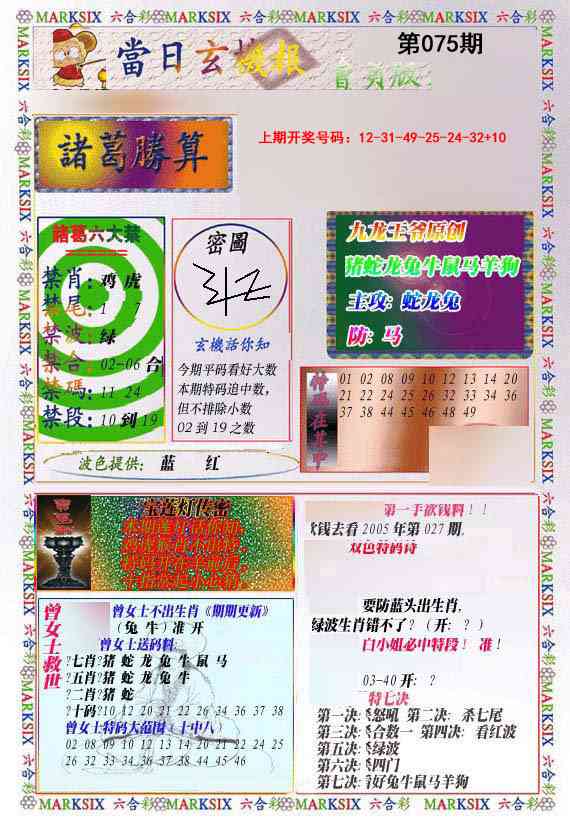 MARKSIX 六合彩 MARKSIX 六合彩 MARKSIX 六合彩 MARKSIX 六合彩
當日玄機报
第075期
會员版
諸葛勝算
上期开奖号码：12-31-49-25-24-32+10
諸葛六大禁
禁肖：鸡 虎
禁尾：1 7
禁波：绿
禁合：02-06 合
禁碼：11 24
禁段：10 到 19
密圖
玄機話你知
今期平码看好大数
本期特码追中数，
但不排除小数
02 到 19 之数
九龙王爷原创
猪蛇龙兔牛鼠马羊狗
主攻：蛇龙兔
防：马
特码在其中
01 02 08 09 10 12 13 14 20
21 22 24 25 26 32 33 34 36
37 38 44 45 46 48 49
波色提供： 蓝 红
宝莲灯传密
第一手砍钱料！！
欠钱去看 2005 年第 027 期，
双色特码诗
要防蓝头出生肖，
绿波生肖错不了？（开：？）
白小姐必中特段！ 准！
03-40 开：？
特七决
第一决:杀怒吼 第二决: 杀七尾
第三决:杀合数一 第四决: 看红波
第五决:杀绿波
第六决:杀四门
第七决:看好兔牛鼠马羊狗
曾女士救世
曾女士不出生肖《期期更新》
（兔 牛）准 开
曾女士送码料
?七肖?猪 蛇 龙 兔 牛 鼠 马
?五肖?猪 蛇 龙 兔 牛
?二肖?猪 蛇
?十码?10 12 20 21 22 26 34 36 37 38
曾女士特码大范围（十中八）
02 08 09 10 12 13 14 20 21 22 24 25
26 32 33 34 36 37 38 44 45 46
MARKSIX 六合彩 MARKSIX 六合彩 MARKSIX 六合彩 MARKSIX 六合彩